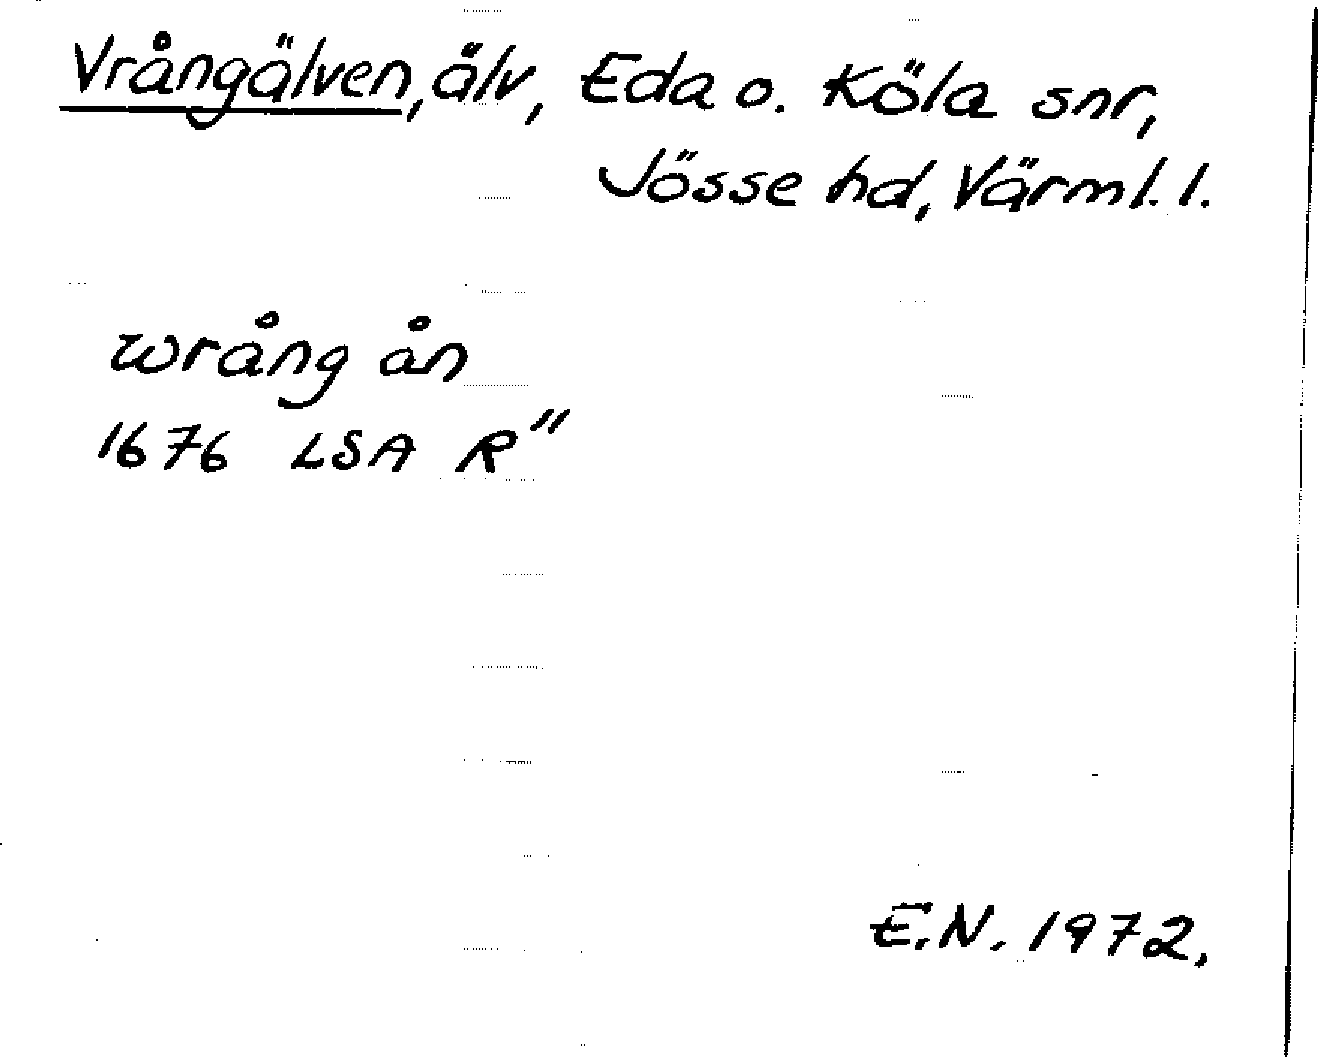 Vrångälven, älv, Eda o. Köla snr,
Jösse hd, Värml. l.
wrång ån
1676 LSA R"
E.N. 1972.